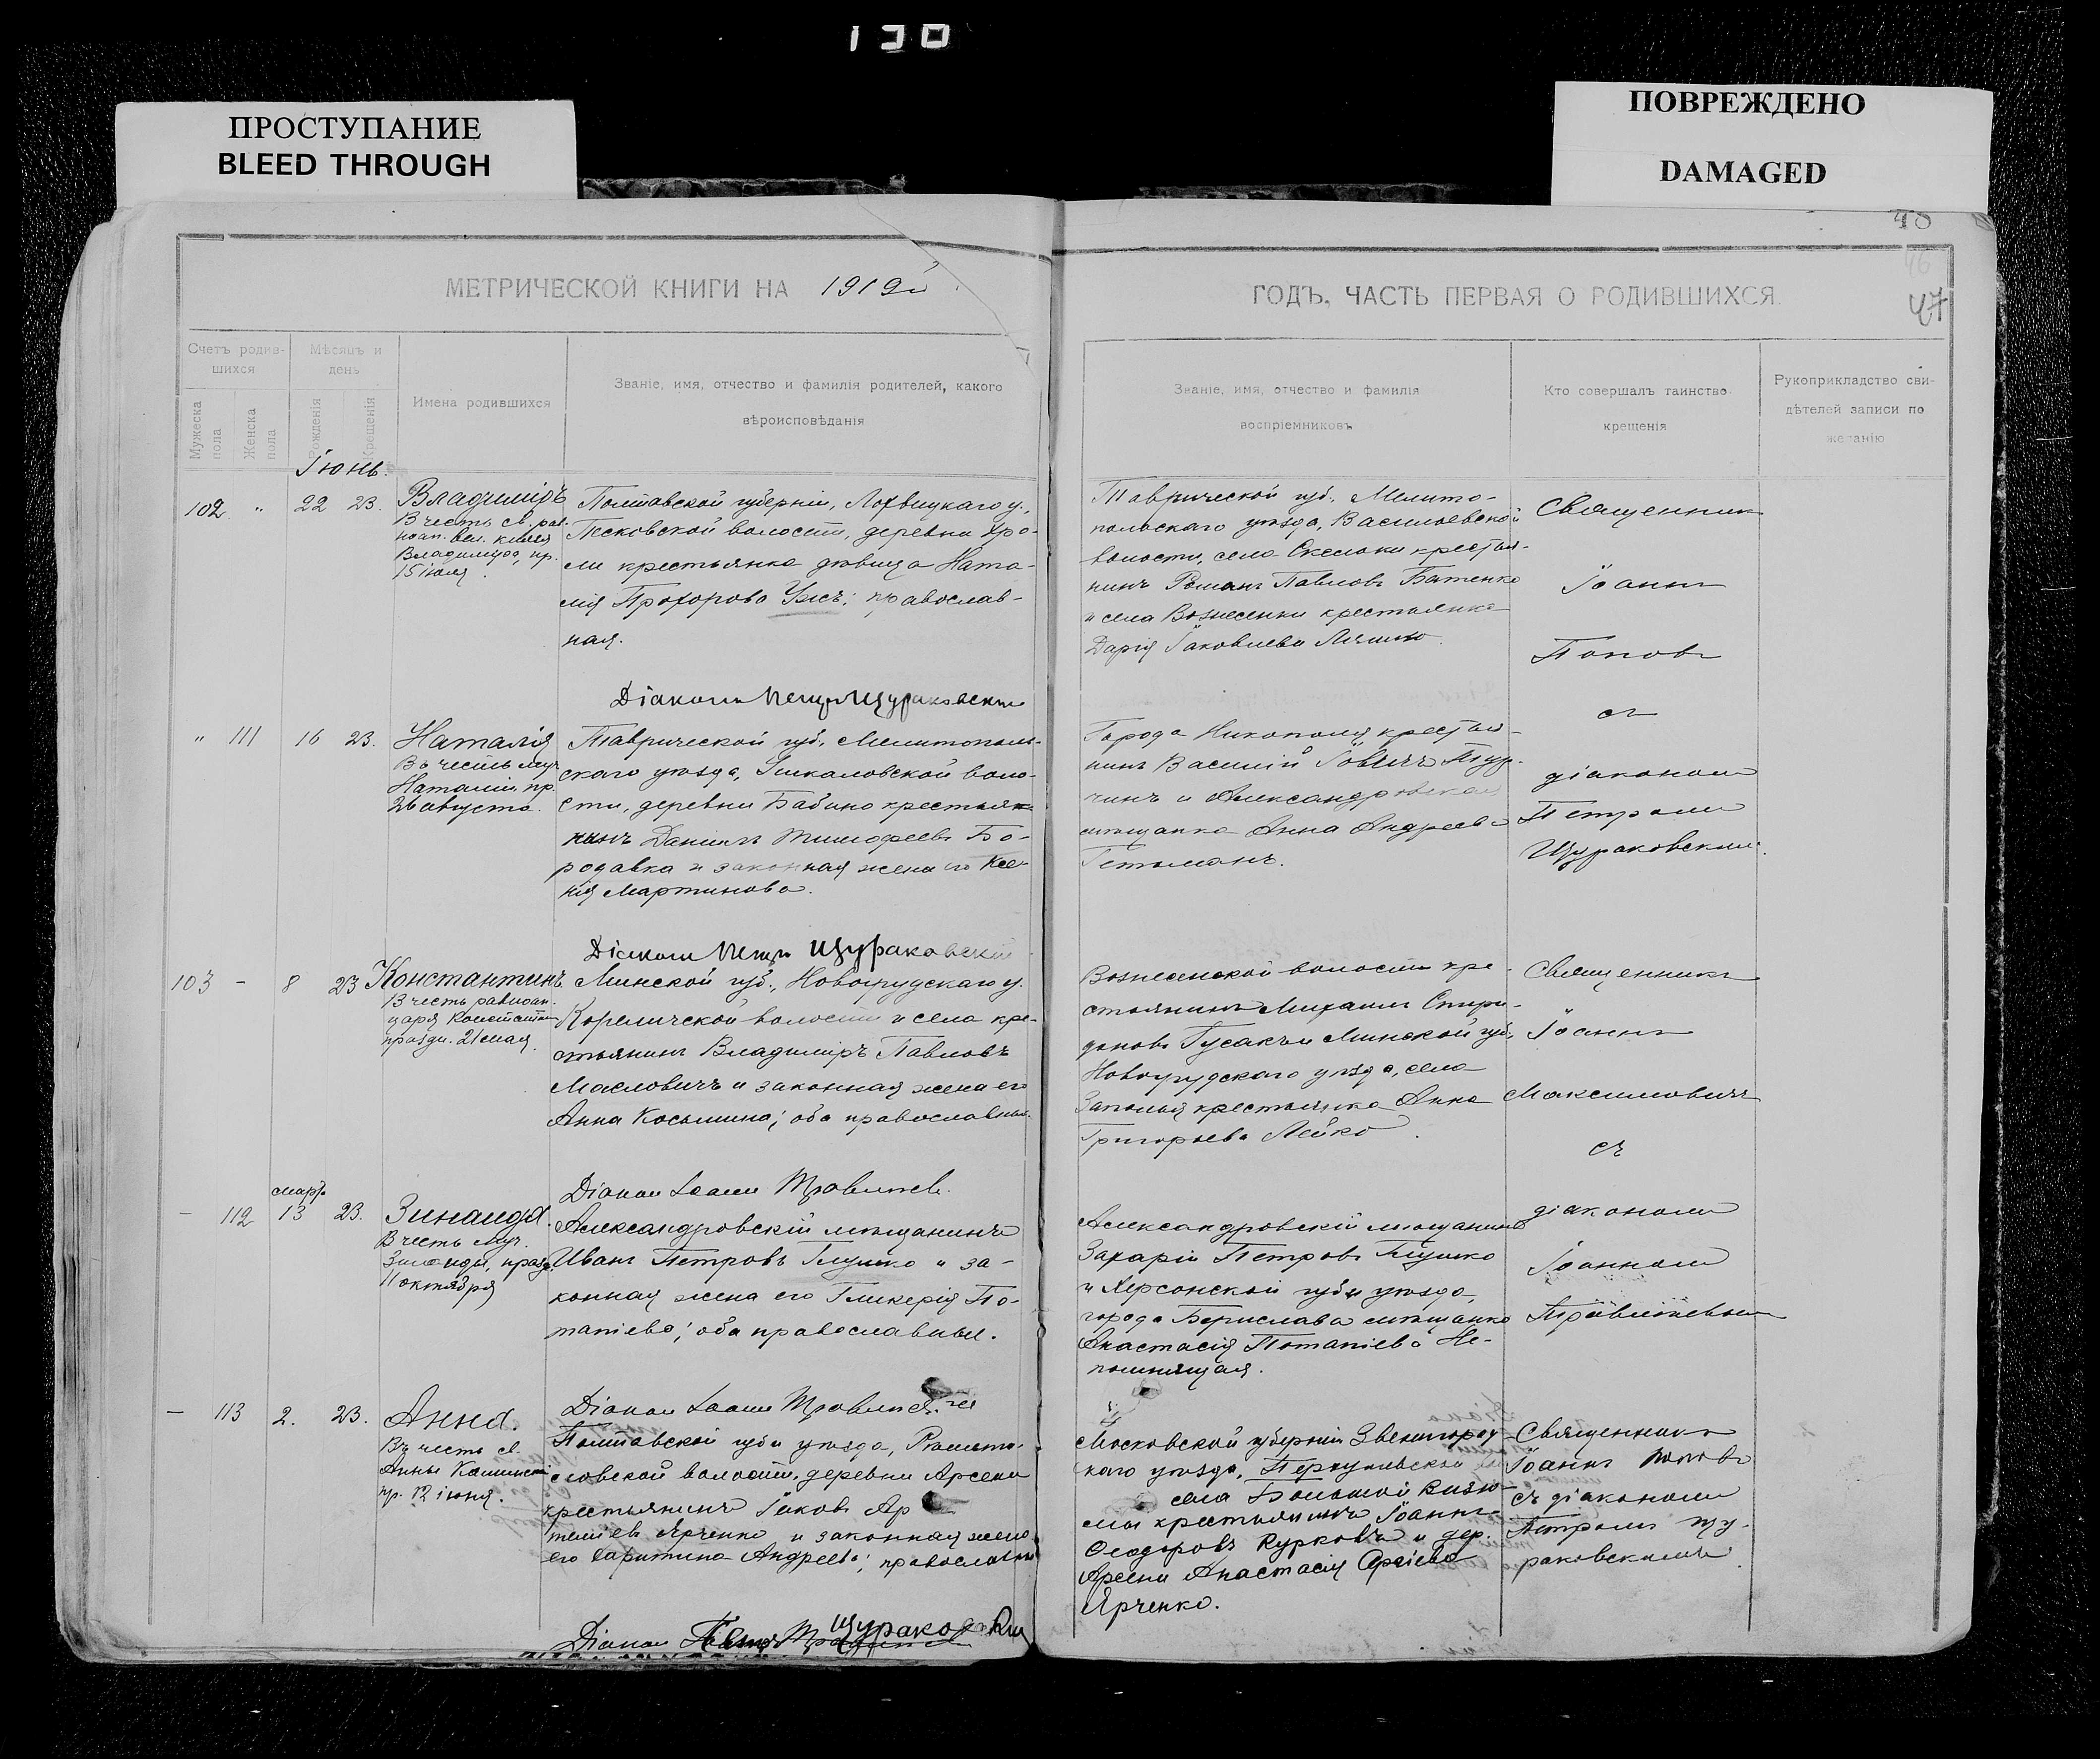 130
ПРОСТУПАНИЕ
BLEED THROUGH
ПОВРЕЖДЕНО
DAMAGED
48
46
47
МЕТРИЧЕСКОЙ КНИГИ НА 1919й
ГОДЪ, ЧАСТЬ ПЕРВАЯ О РОДИВШИХСЯ.
Счетъ родив-
шихся
Мужеска
пола
Женска
пола
Мѣсяцъ и
день
Рожденія
Крещенія
Имена родившихся
Званіе, имя, отчество и фамилія родителей, какого
вѣроисповѣданія
Званіе, имя, отчество и фамилія
воспріемниковъ
Кто совершалъ таинство
крещенія
Рукоприкладство сви-
дѣтелей записи по
желанію
Іюнь.
102 " 22 23.
Владиміръ
В честь св. рав-
ноап. вел. князя
Владиміра, пр.
15 іюля.
Полтавской губерніи, Лохвицкаго у.,
Песковской волости, деревни Хро-
ли крестьянка дѣвица Ната-
лія Прохорова Ужъ; православ-
ная.
Діаконъ Петръ Щураковскій
Таврической губ. Мелито-
польскаго уѣзда, Васильевской
волости, села Скельки крестья-
нинъ Романъ Павловъ Батенко
и села Вознесенки крестьянка
Дарія Іаковлева
Священникъ
Іоаннъ
Поповъ
съ
діакономъ
Петромъ
Щураковскимъ.
" 111 16 23.
Наталія
Въ честь муч.
Наталіи, пр.
26 августа.
Таврической губ. Мелитополь-
скаго уѣзда, волo-
сти, деревни Бабино крестья-
нинъ Даніилъ Тимофеевъ Бо-
родавка и законная жена его Ксе-
нія Мартинова.
Діаконъ Петръ Щураковскій
Города Никополя крестья-
нинъ Василій Тур-
чинъ и Александровская
мѣщанка Анна Андреева
Гетьманъ.
103 - 8 23
Константинъ
В честь равноап.
царя Константина
праздн. 21 мая.
Минской губ., Новогрудскаго у.
Кореличской волости и села кре-
стьянинъ Владиміръ Павловъ
Масловичъ и законная жена его
Анна Косьмина; оба православные.
Діаконъ Іоаннъ
Вознесенской волости кре-
стьянинъ Михаилъ Спири-
доновъ Гусакъ и Минской губ.,
Новогрудскаго уѣзда, села
Заполья крестьянка Анна
Григорьева Лейко.
Священникъ
Іоаннъ
Максимовичъ
съ
діакономъ
Іоанномъ
- 112 мартъ 13 23.
Зинаида.
В честь муч.
Зинаиды, празд.
11 октября
Александровскій мѣщанинъ
Иванъ Петровъ Глушко и за-
конная жена его Гликерія По-
тапіева; оба православные.
Діаконъ Іоаннъ
Александровскій мѣщанинъ
Захарій Петровъ Глушко
и Херсонской губ. и уѣзда,
города Берислава мѣщанка
Анастасія Потапіева Не-
помнящая.
- 113 2. 23.
Анна.
Въ честь св.
Анны
пр. 12 іюня.
Полтавской губ. и уѣзда,
волости, деревни Арсени
крестьянинъ Іаковъ
Ярченко и законная жена
его Харитина Андреева; православные
Діаконъ Петръ Щураковскій
Московской губерніи Звенигород-
скаго уѣзда,
села Большой Вязе-
мы крестьянинъ Іоаннъ
Ѳеодоровъ Курковъ и дер.
Арсени Анастасія Сергіева
Ярченко.
Священникъ
Іоаннъ Поповъ
съ діакономъ
Петромъ Щу-
раковскимъ.